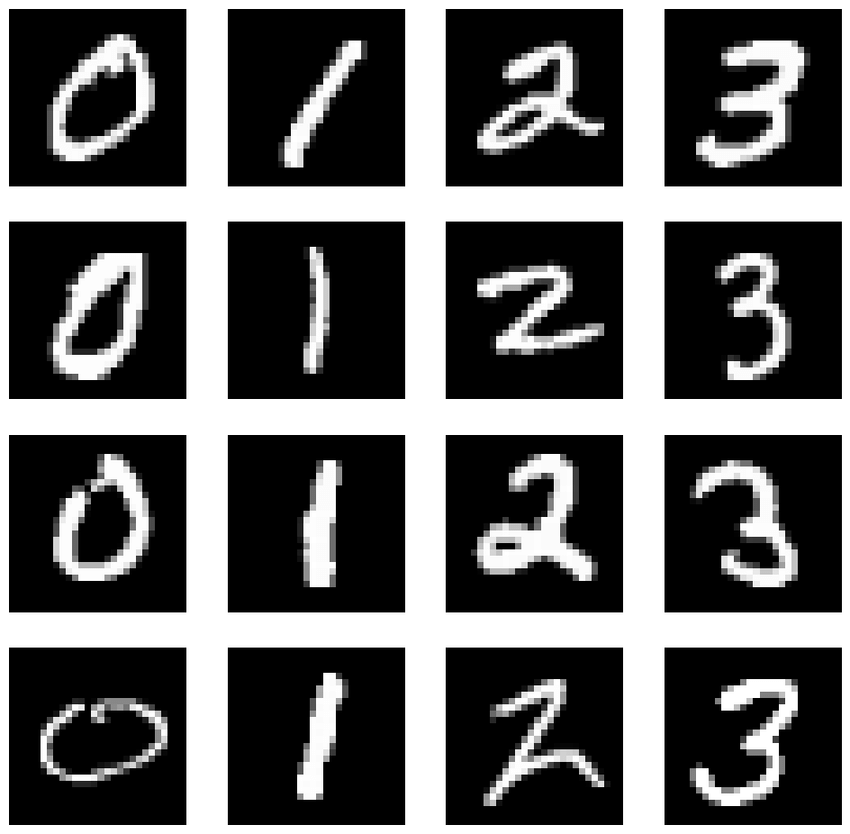 0 1 2 3
0 1 2 3
0 1 2 3
0 1 2 3